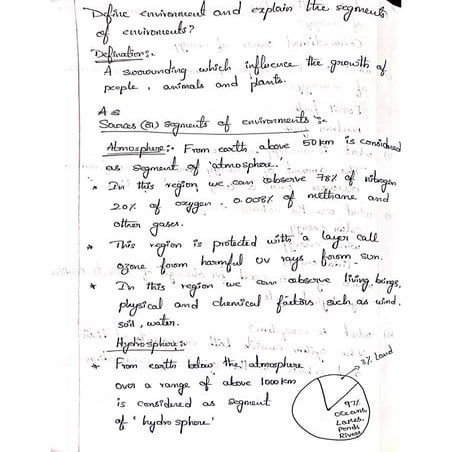 Define environment and explain the segments
of environments?
Definations:-
A surrounding which influence the growth of
people, animals and plants.
A s
Sources (or) segments of environments :-
Atmosphere:- From earth above 50 km is considered
as segment of 'atmosphere.'
* In this region we can observe 78% of nitrogen
20% of oxygen, 0.008% of methane and
other gases.
* This region is protected with a layer call
ozone form harmful uv rays form sun.
* In this region we can observe living beings,
physical and chemical factors such as wind,
soil, water.
Hydrosphere:-
* From earth below the atmosphere
over a range of above 1000 km
is considered as segment
of 'hydrosphere'
3% Land
97%
Oceans
Lakes,
Ponds
Rivers